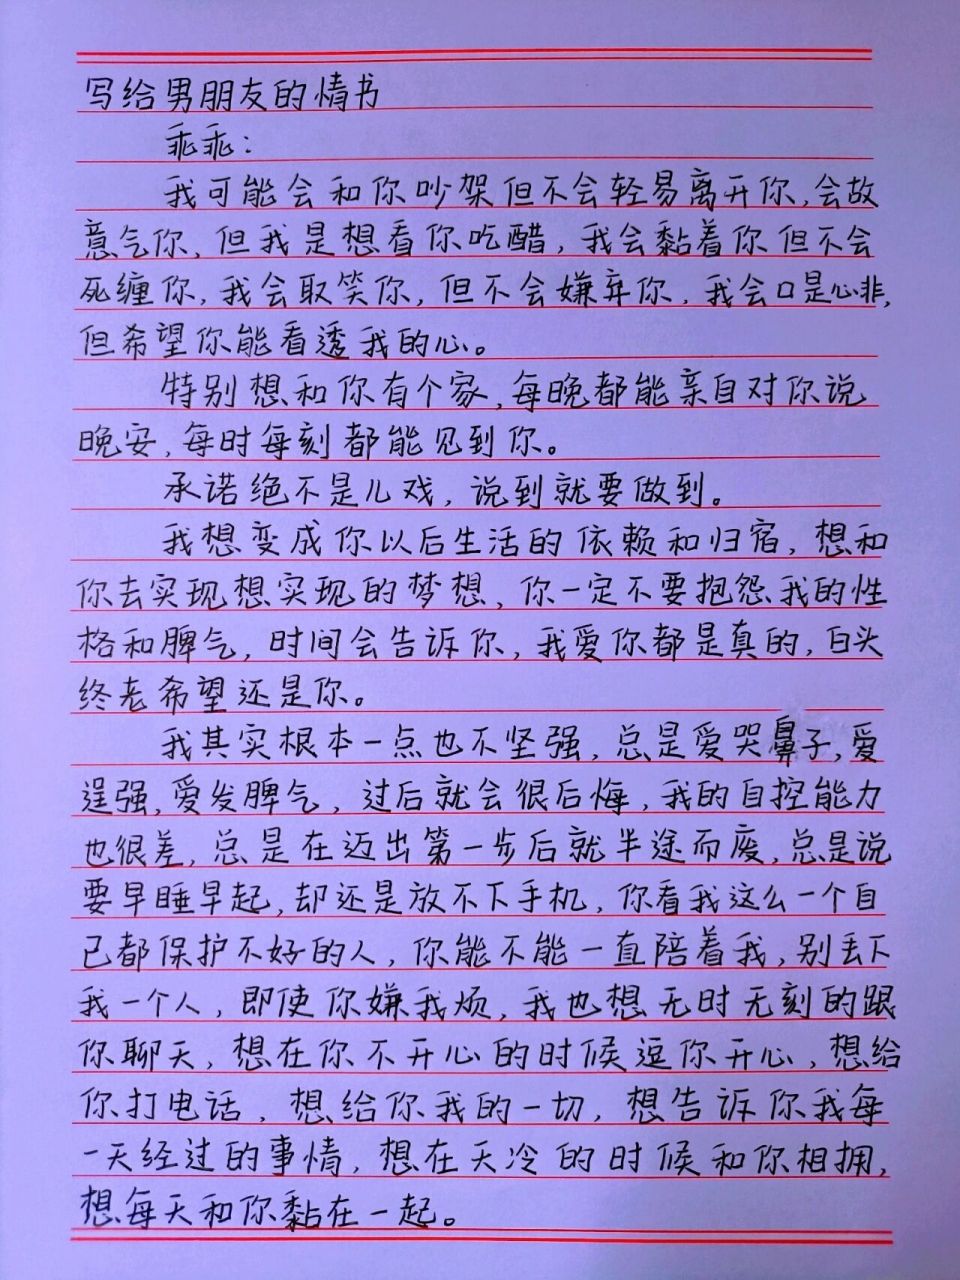 写给男朋友的情书
乖乖：
我可能会和你吵架但不会轻易离开你,会故
意气你,但我是想看你吃醋,我会黏着你但不会
死缠你,我会取笑你,但不会嫌弃你,我会口是心非,
但希望你能看透我的心。
特别想和你有个家,每晚都能亲自对你说
晚安,每时每刻都能见到你。
承诺绝不是儿戏,说到就要做到。
我想变成你以后生活的依赖和归宿,想和
你去实现想实现的梦想,你一定不要抱怨我的性
格和脾气,时间会告诉你,我爱你都是真的,白头
终老希望还是你。
我其实根本一点也不坚强,总是爱哭鼻子,爱
逞强,爱发脾气,过后就会很后悔,我的自控能力
也很差,总是在迈出第一步后就半途而废,总是说
要早睡早起,却还是放不下手机,你看我这么一个自
己都保护不好的人,你能不能一直陪着我,别丢下
我一个人,即使你嫌我烦,我也想无时无刻的跟
你聊天,想在你不开心的时候逗你开心,想给
你打电话,想给你我的一切,想告诉你我每
一天经过的事情,想在天冷的时候和你相拥,
想每天和你黏在一起。